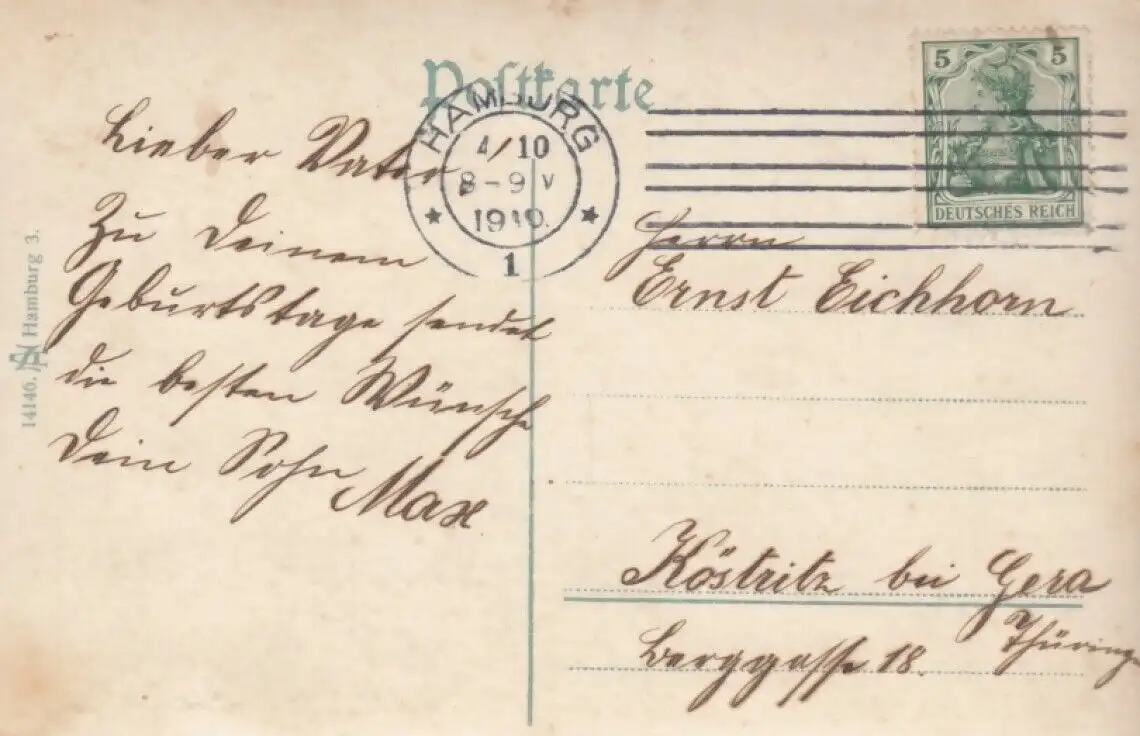 Postkarte
HAMBURG
4/10
8-9 V
1910.
1
5 5
DEUTSCHES REICH
Lieber Vater
Zu Deinem
Geburtstage sendet
die besten Wünsche
Dein Sohn
Max
Herrn
Ernst Eichhorn
Köstritz bei Gera
Thüringe
Berggasse 18.
14146. Hamburg 3.